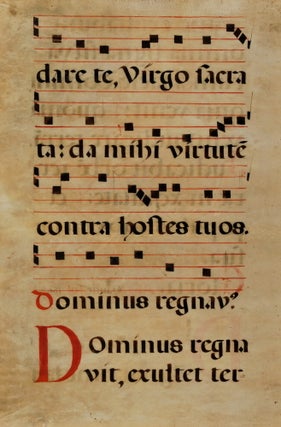 dare te, Virgo sacra
ta: da mihi virtutē
contra hostes tuos.
Dominus regnav?
Dominus regna
vit, exultet ter